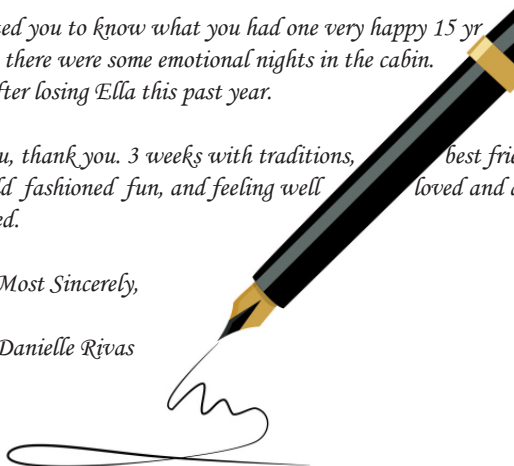 ed you to know what you had one very happy 15 yr
there were some emotional nights in the cabin.
fter losing Ella this past year.
u, thank you. 3 weeks with traditions, best frie
ld fashioned fun, and feeling well loved and a
ed.
Most Sincerely,
Danielle Rivas